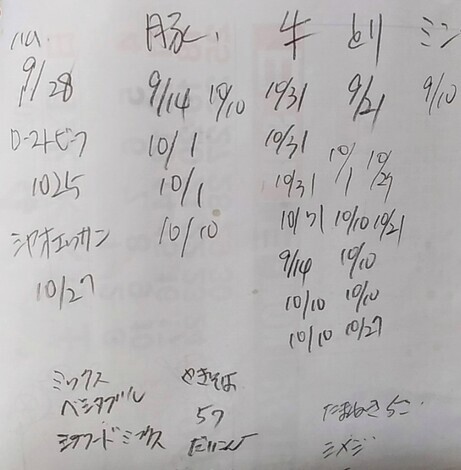 ハム 豚 牛 とり ミンチ
9/28 9/14 10/10 10/31 9/21 9/10
ローストビーフ 10/1 10/31 10/1 10/27
1025 10/1 10/31 10/10 10/21
10/10 10/31
10/27 9/14 10/10
10/10 10/10
10/10 10/27
ミックス やきそば
ベジタブル 57 たまねぎ
シーフードミックス だいこん シメジ